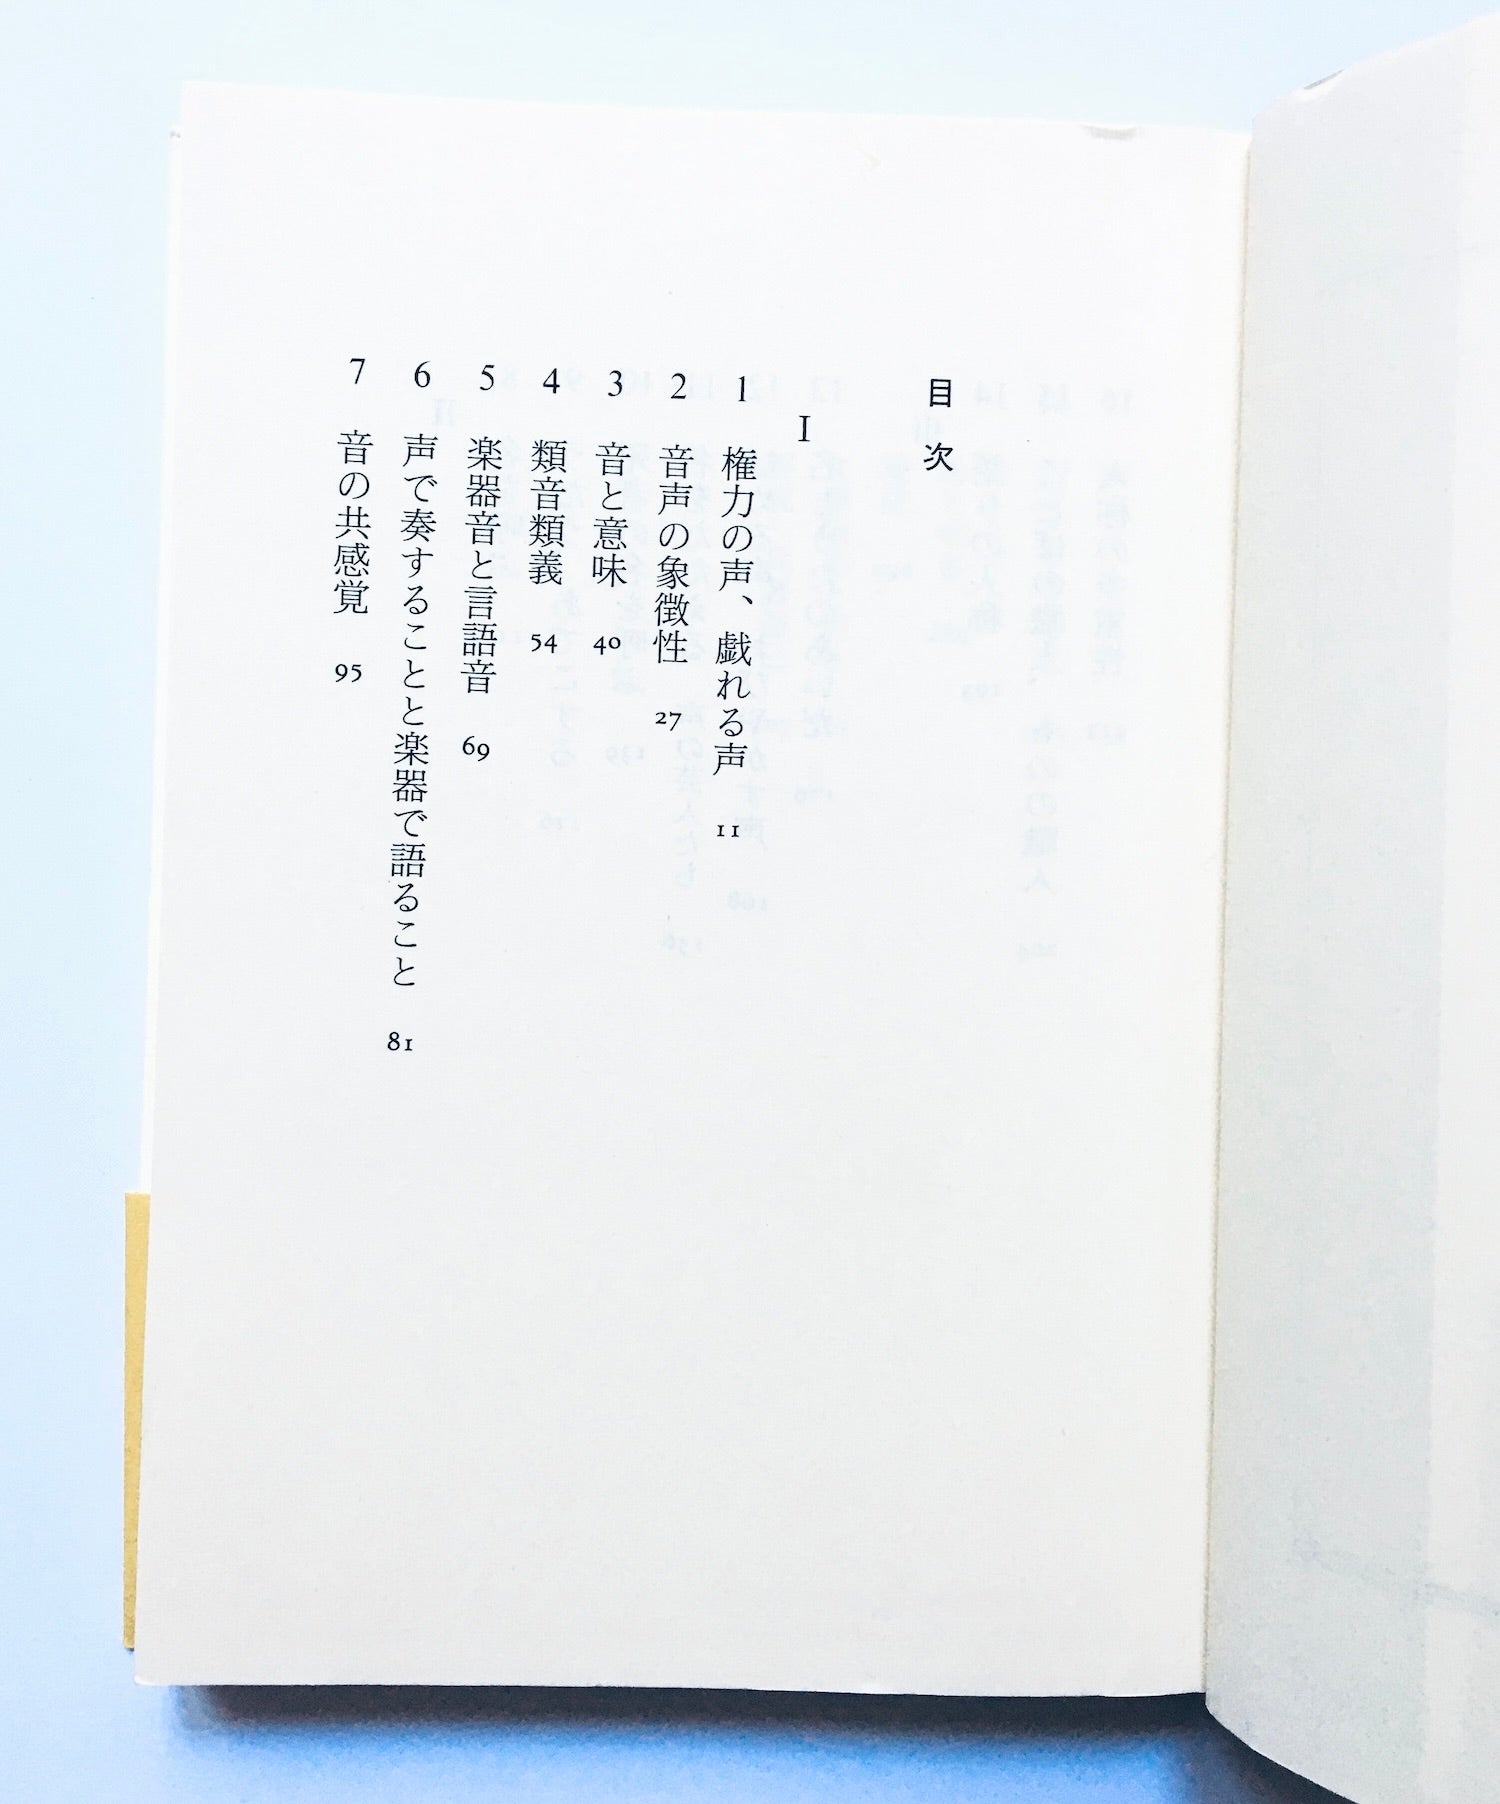 目次
I
1 権力の声、戯れる声 11
2 音声の象徴性 27
3 音と意味 40
4 類音類義 54
5 楽器音と言語音 69
6 声で奏することと楽器で語ること 81
7 音の共感覚 95